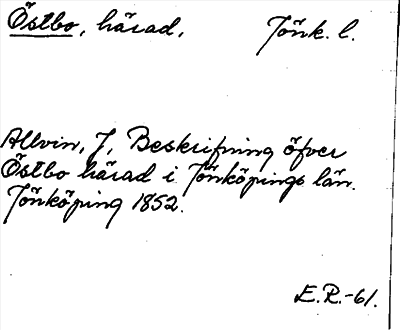 Östbo, härad, Jönk. l.
Allvin, J, Beskrifning öfver
Östbo härad i Jönköpings län.
Jönköping 1852.
E.R.-61.